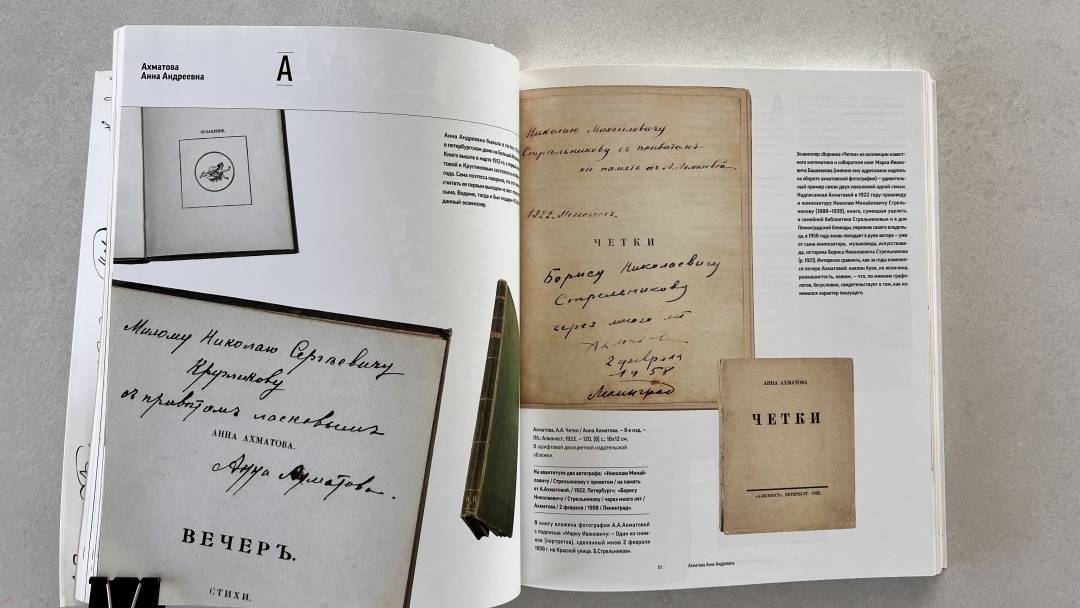 Ахматова
Анна Андреевна
А
Анна Андреевна бывала в гостях
в петербургском доме на Большой
Книга вышла в марте 1912-го, а
товой к Кругликовым состоялся
года. Сама поэтесса говорила, что
считать ее первым выходом на
сына. Видимо, тогда и был подарен
данный экземпляр.
Милому Николаю Сергѣевичу
Кругликову
съ привѣтомъ ласковымъ
АННА АХМАТОВА.
Анна Ахматова.
ВЕЧЕРЪ.
СТИХИ.
Николаю Михайловичу
Стрѣльникову съ привѣтомъ
на память отъ А. Ахматовой.
1922. Петербургъ.
ЧЕТКИ
Борису Николаевичу
Стрельникову
через много лет
Ахматова
2 февраля
1958
Ленинград
Ахматова, А.А. Четки / Анна Ахматова. – 8-е изд. –
Пб.: Алконост, 1922. – 120, [8] с.; 16х12 см.
В шрифтовой двухцветной издательской
обложке.
На авантитуле два автографа: «Николаю Михай-
ловичу / Стрельникову с приветом / на память
от А.Ахматовой. / 1922. Петербург»; «Борису
Николаевичу / Стрельникову / через много лет /
Ахматова / 2 февраля / 1958 / Ленинград».
В книгу вложена фотография А.А.Ахматовой
с подписью: «Марку Ивановичу: – Один из сним-
ков (портретов), сделанный мною 2 февраля
1958 г. на Красной улице. Б.Стрельников».
АННА АХМАТОВА
ЧЕТКИ
«АЛКОНОСТ», ПЕТЕРБУРГ 1922.
Экземпляр сборника «Четки» из коллекции извест-
ного математика и собирателя книг Марка Ивано-
вича Башмакова (именно ему адресована надпись
на обороте ахматовской фотографии) – удивитель-
ный пример связи двух поколений одной семьи.
Надписанная Ахматовой в 1922 году правоведу
и композитору Николаю Михайловичу Стрель-
никову (1888–1939), книга, сумевшая уцелеть
в семейной библиотеке Стрельниковых и в дни
Ленинградской блокады, пережив своего владель-
ца, в 1958 году вновь попадает в руки автора – уже
от сына композитора, музыковеда, искусствове-
да, историка Бориса Николаевича Стрельникова
(р. 1921). Интересно сравнить, как за годы изменил-
ся почерк Ахматовой: наклон букв, их величина,
размашистость, нажим, – что, по мнению графо-
логов, безусловно, свидетельствует о том, как из-
менился характер пишущего.
Ахматова Анна Андреевна